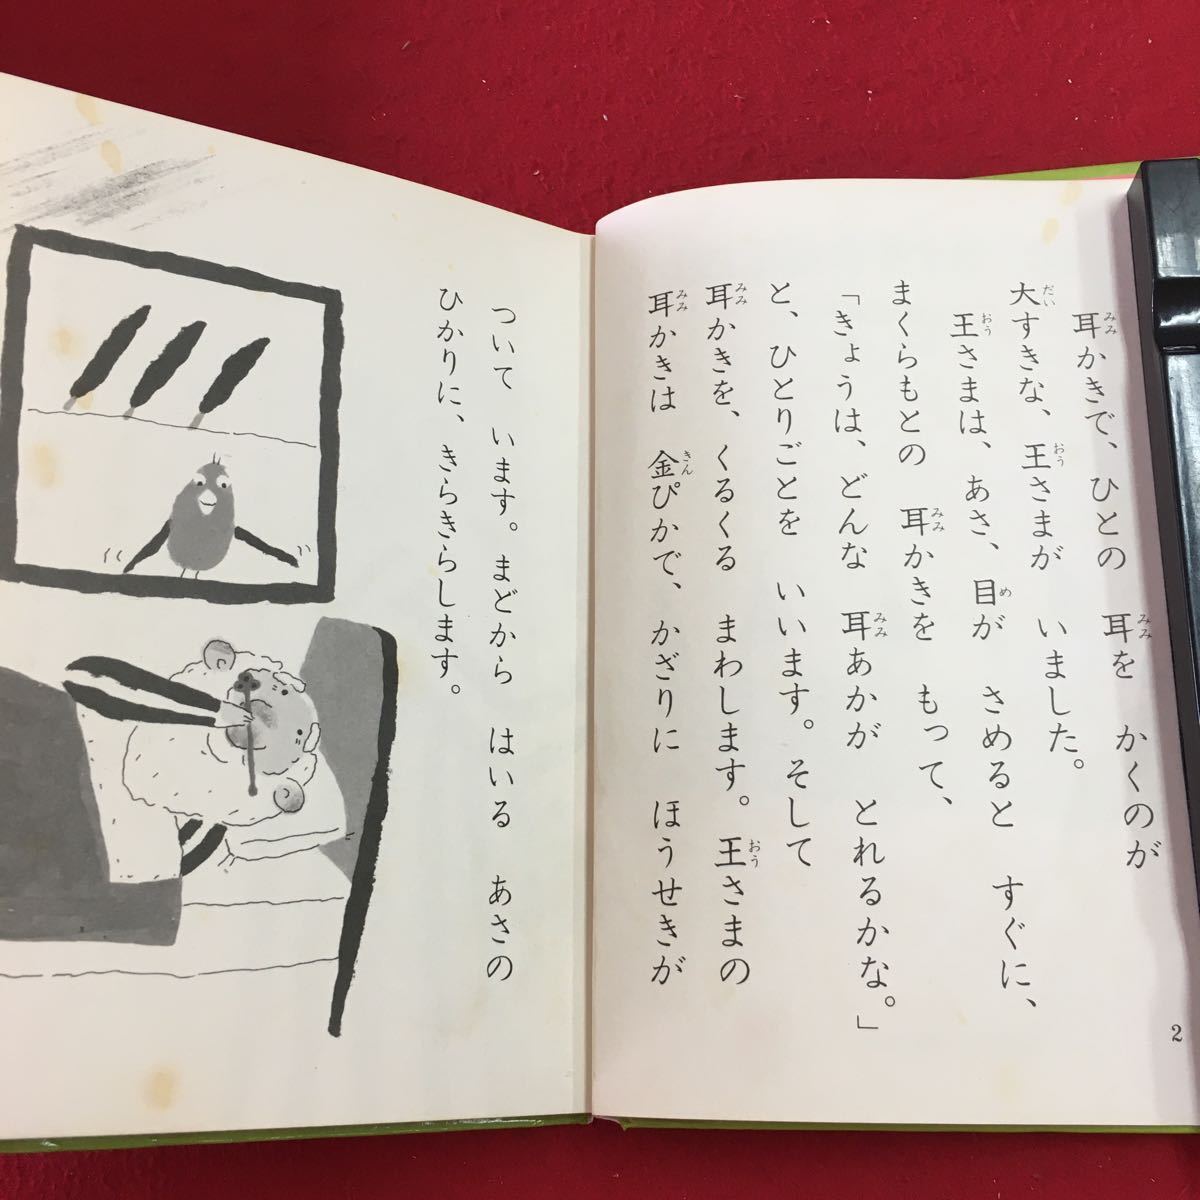 耳かきで、ひとの　耳を　かくのが
大すきな、王さまが　いました。
王さまは、あさ、目が　さめると　すぐに、
まくらもとの　耳かきを　もって、
「きょうは、どんな　耳あかが　とれるかな。」
と、ひとりごとを　いいます。そして
耳かきを、くるくる　まわします。王さまの
耳かきは　金ぴかで、かざりに　ほうせきが
2
ついて　います。まどから　はいる　あさの
ひかりに、きらきらします。